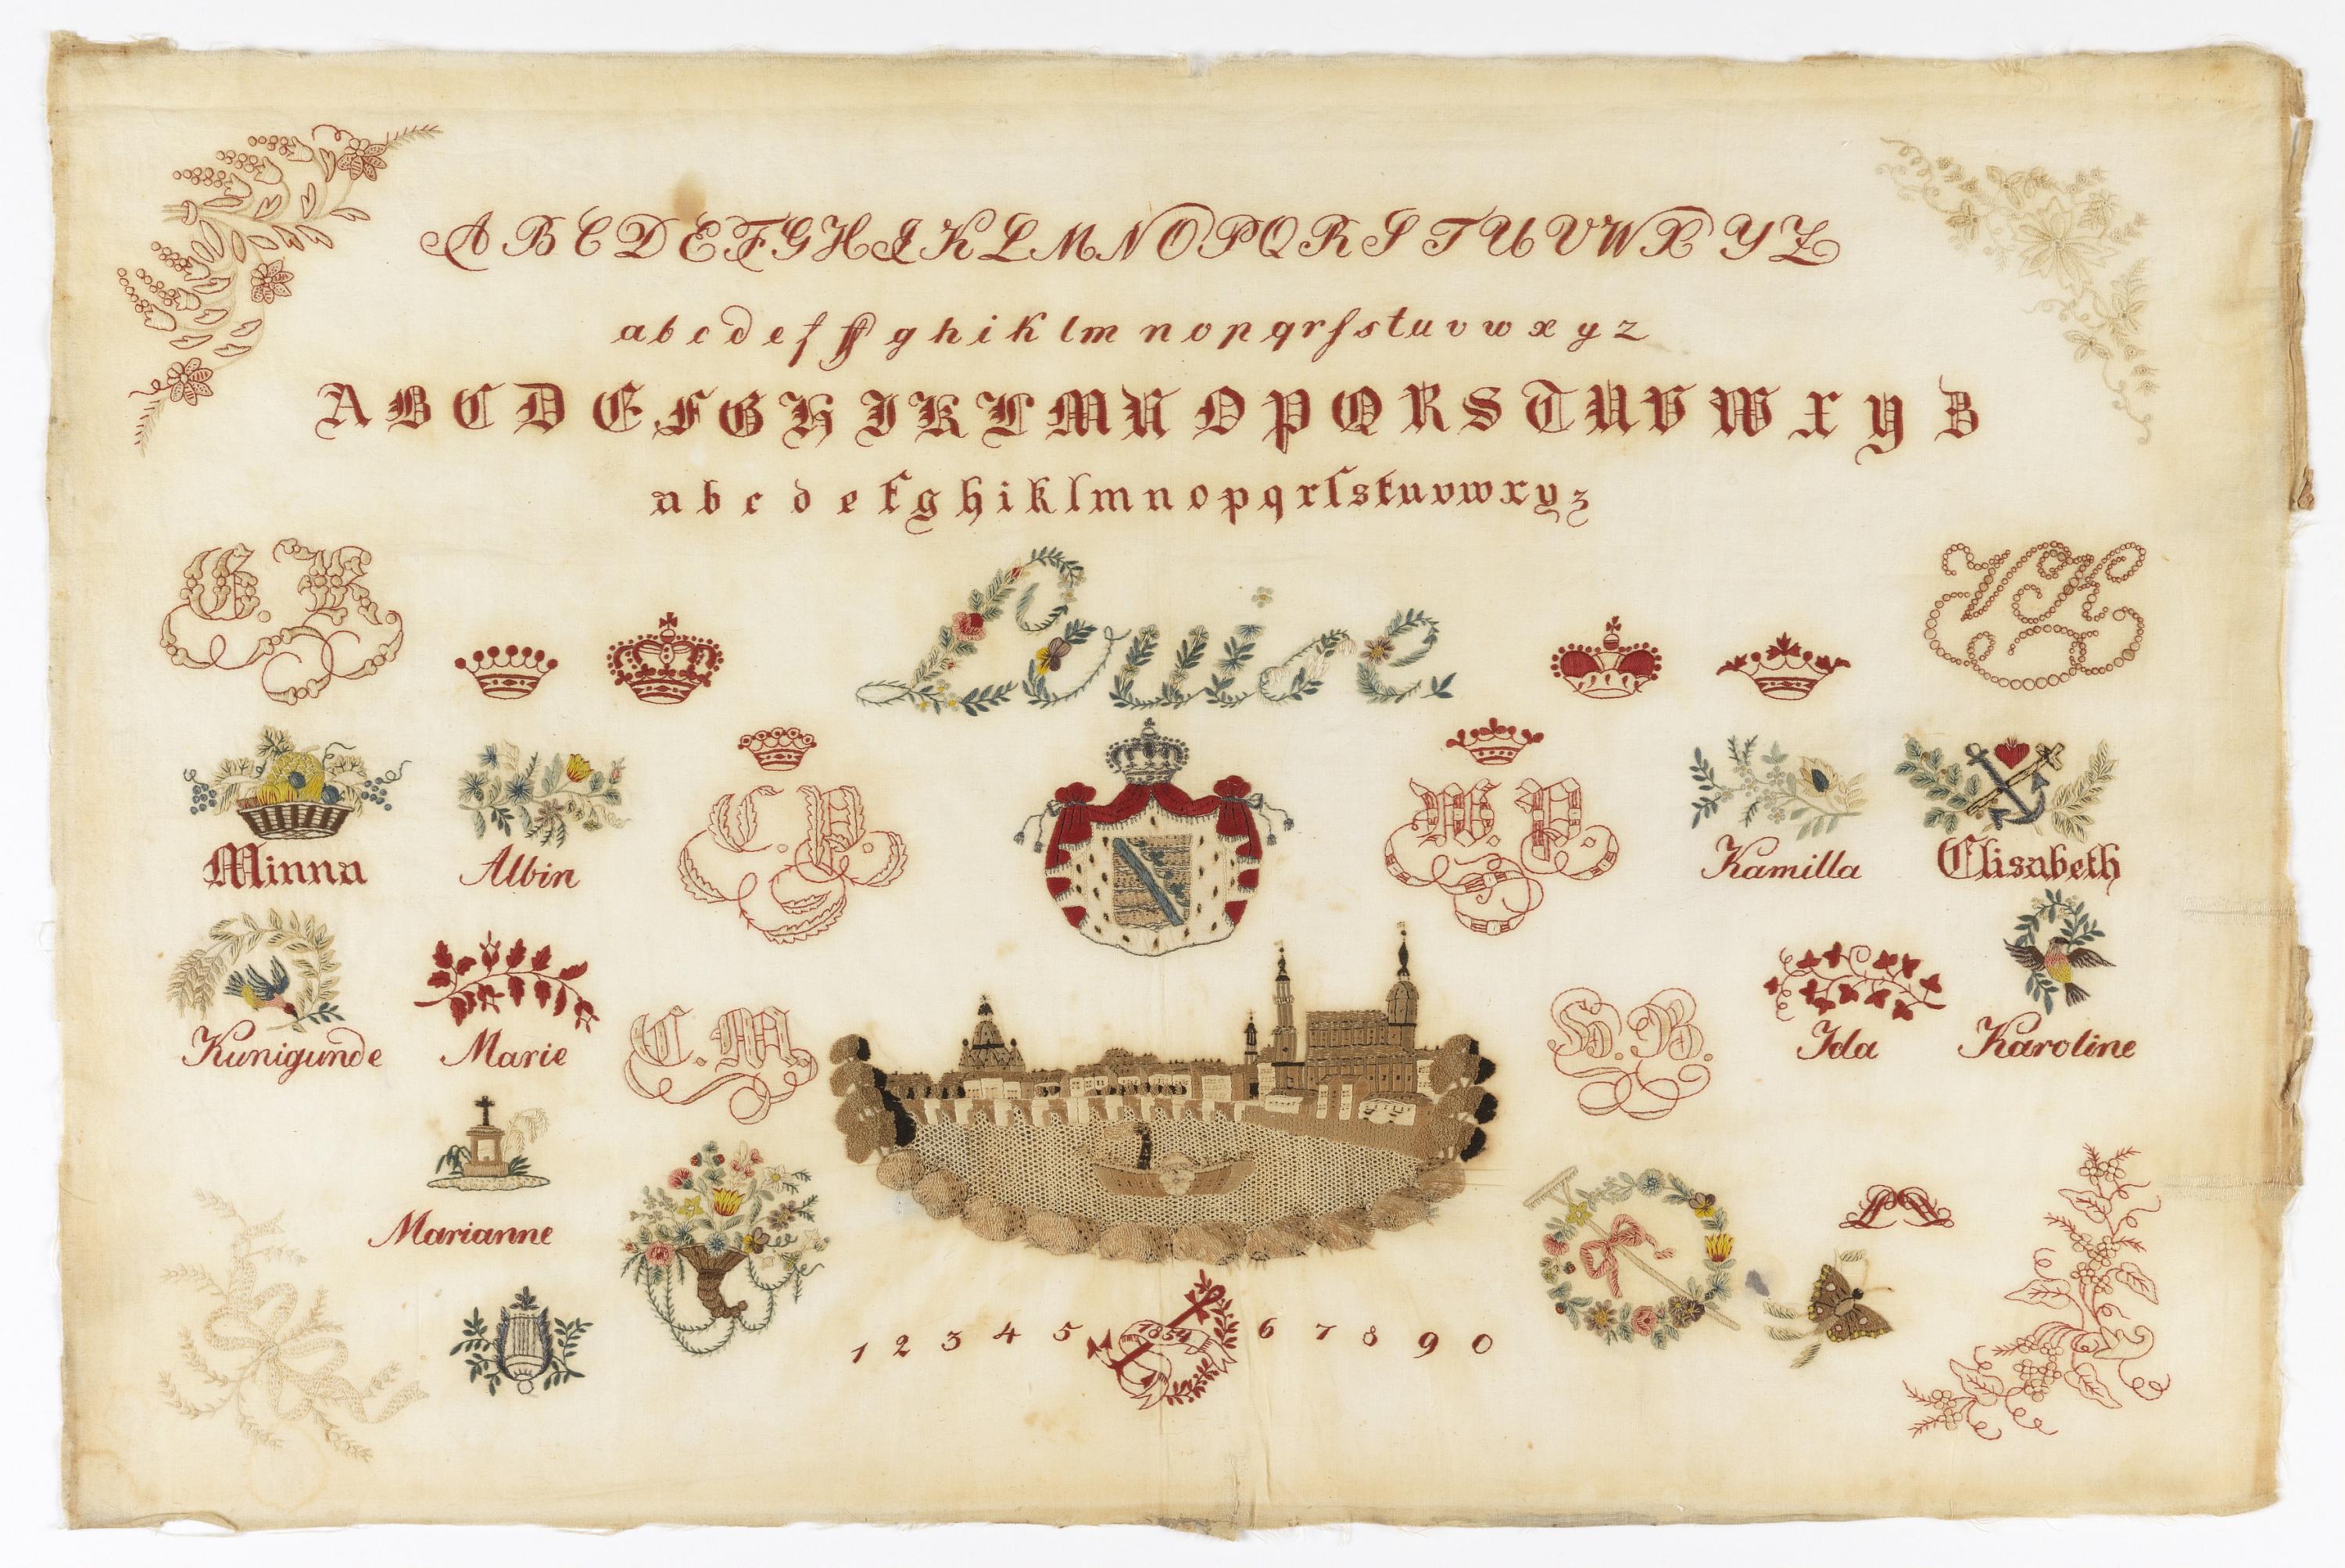 A B C D E F G H I K L M N O P Q R S T U V W X Y Z
a b c d e f ff g h i k l m n o p q r ſ s t u v w x y z
A B C D E F G H I K L M N O P Q R S T U V W X Y Z
a b c d e f g h i k l m n o p q r ſ s t u v w x y z
G. K.
Luise
Minna
Albin
C. P.
W. P.
Kamilla
Elisabeth
Kunigunde
Marie
C. M.
Ida
Karoline
Marianne
1 2 3 4 5
1854
6 7 8 9 0